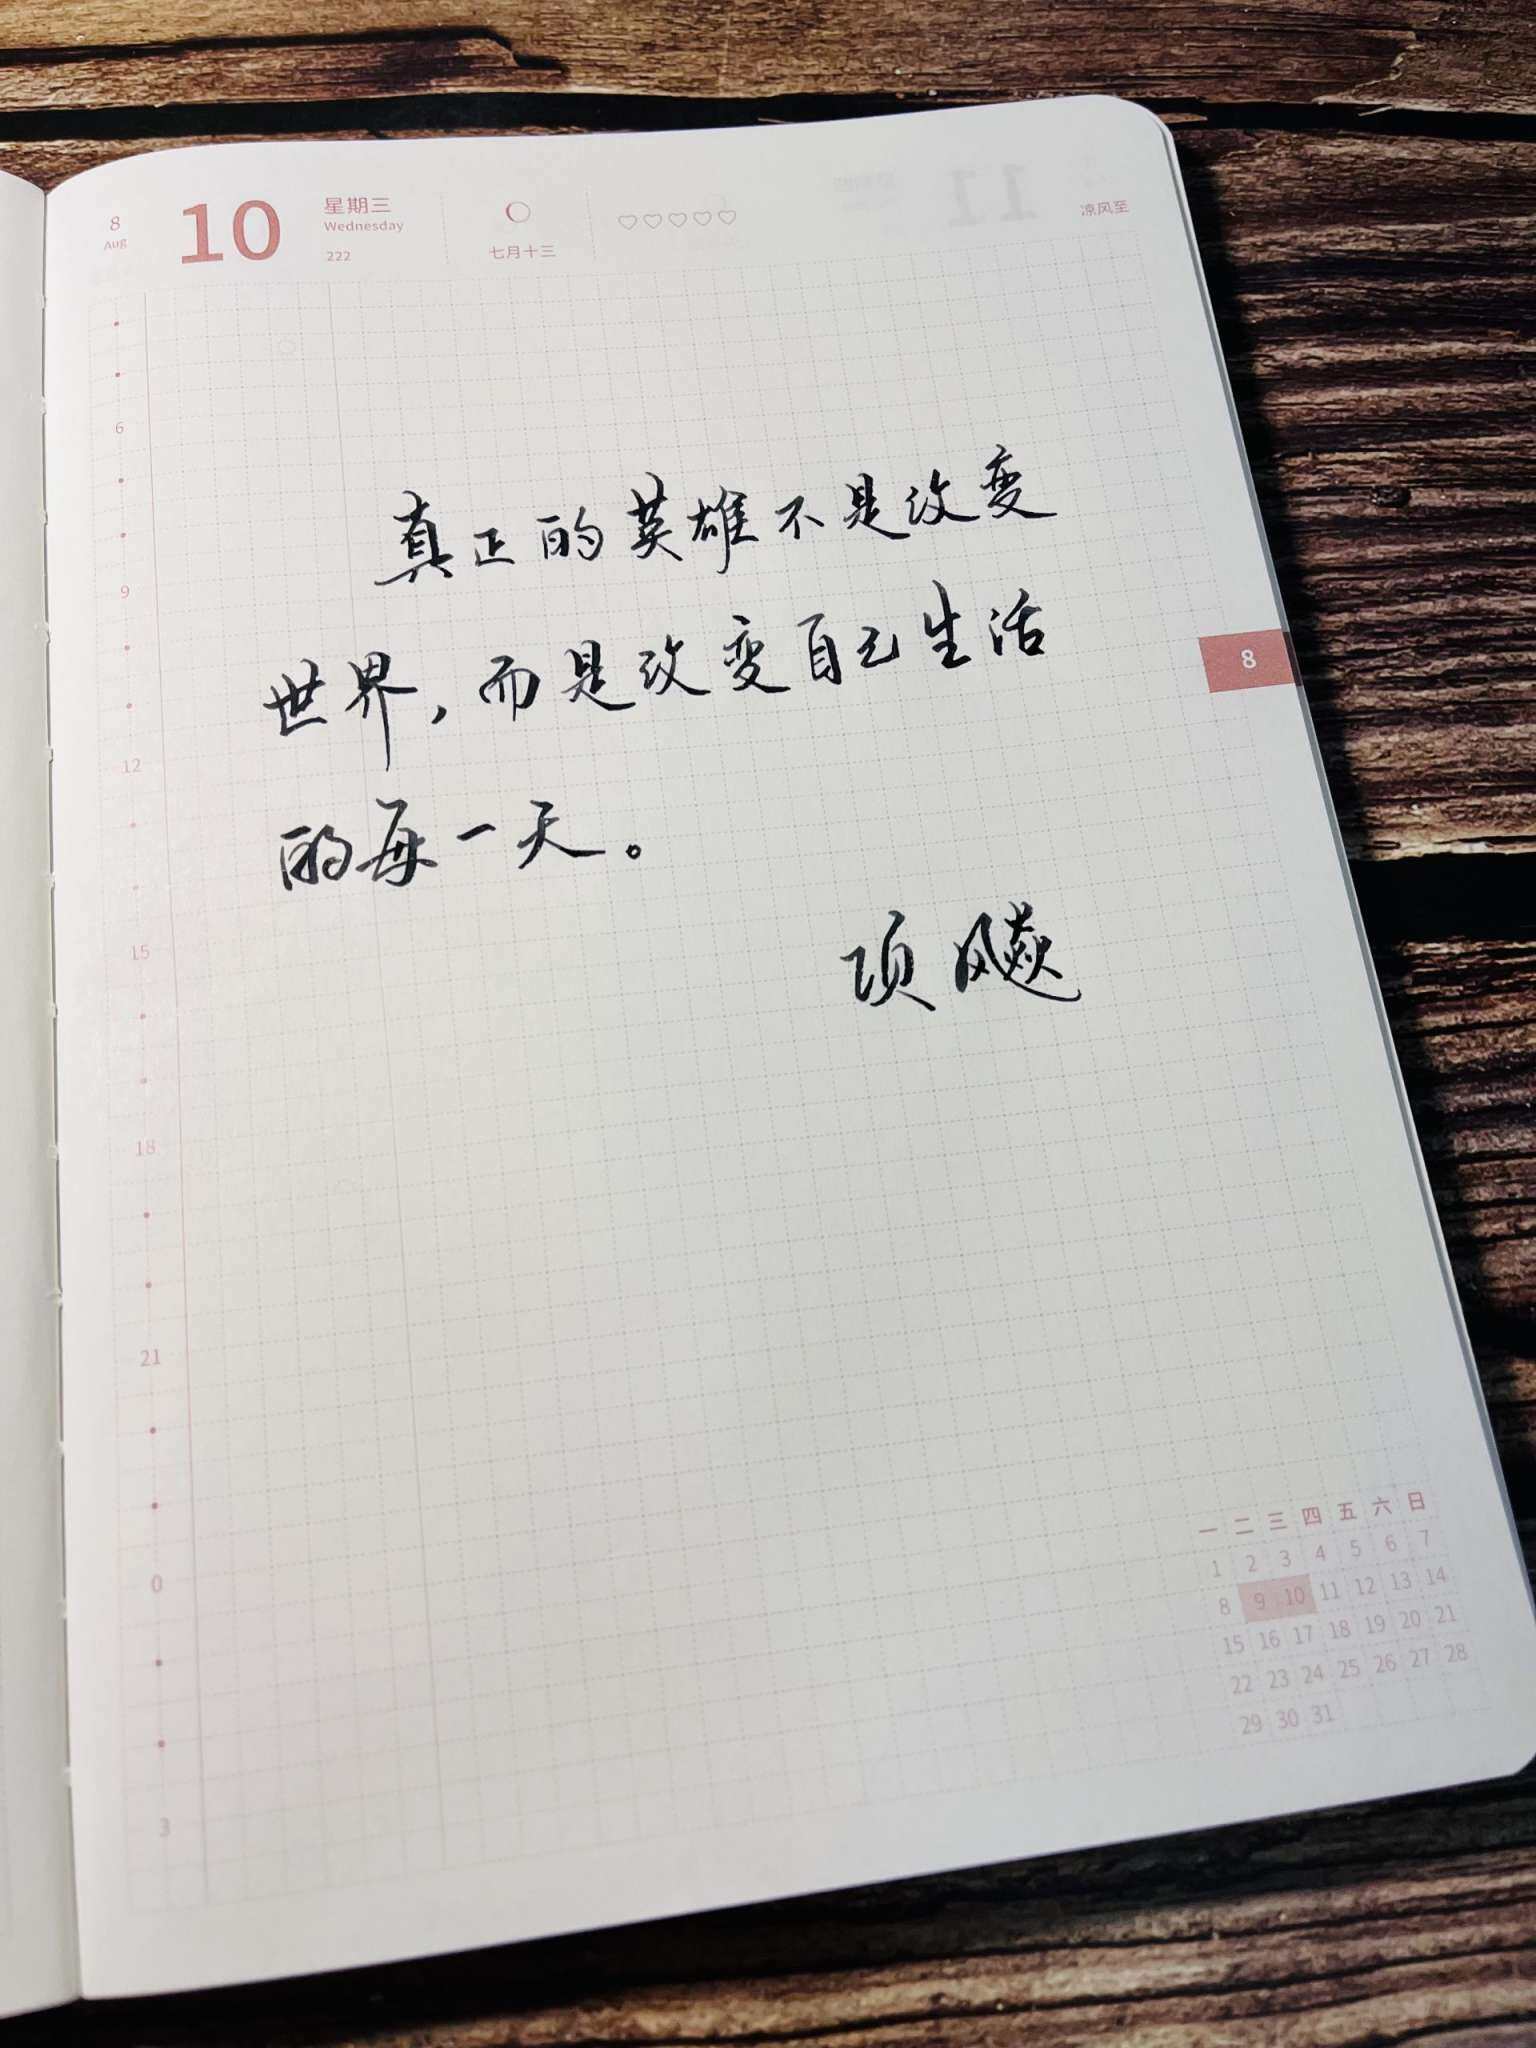 8
Aug
10
星期三
Wednesday
222
七月十三
凉风至
真正的英雄不是改变
世界，而是改变自己生活
的每一天。
项飚
8
6
9
12
15
18
21
0
3
一 二 三 四 五 六 日
1 2 3 4 5 6 7
8 9 10 11 12 13 14
15 16 17 18 19 20 21
22 23 24 25 26 27 28
29 30 31